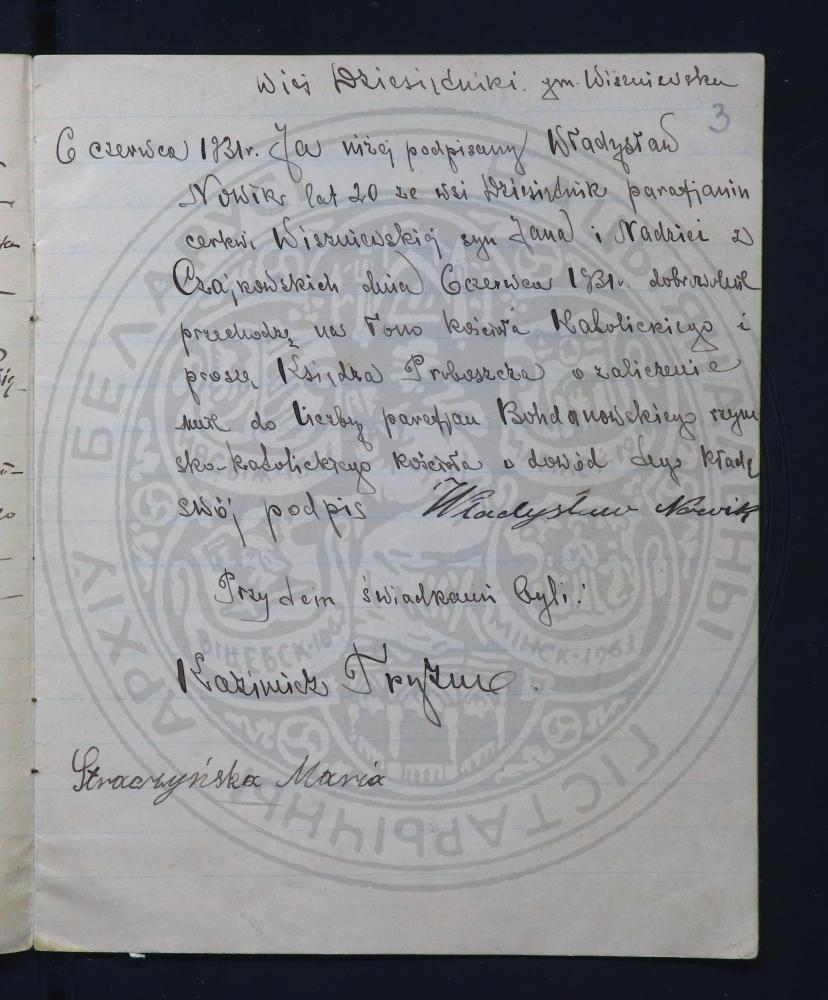 Wieś Dziesiętniki. gm. Wiszniewska
3
6 czerwca 1931r. Ja niżej podpisany Władysław
Nowik lat 20 ze wsi Dziesiętnik parafjanin
cerkwi Wiszniewskiej syn Jana i Nadziei z
Czajkowskich dnia 6 czerwca 1931r. dobrowolnie
przechodzę na łono kościoła Katolickiego i
proszę Księdza Proboszcza o zaliczenie
mnie do liczby parafjan Bohdanowskiego rzym
sko-katolickiego kościoła o dowód tego kładę
swój podpis Władysław Nowik
Przy tem świadkami byli:
Kazimierz Tryzna.
Straczyńska Maria
БЕЛАРУСІ
ГІСТАРЫЧНЫ
АРХІЎ
ВІЦЕБСК·1863
МІНСК·1963